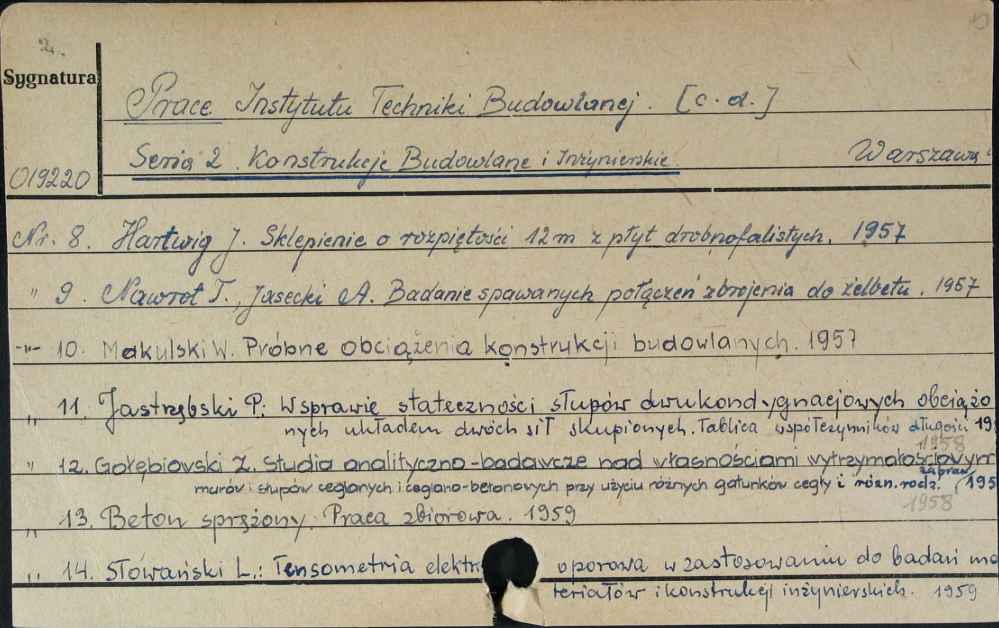 Sygnatura
Prace Instytutu Techniki Budowlanej. [c.d.]
Seria 2. Konstrukcje Budowlane i Inżynierskie. Warszawa
019220
Nr. 8. Hartwig J. Sklepienie o rozpiętości 12 m z płyt drobnofalistych. 1957
" 9. Nawrot T., Jasecki A. Badanie spawanych połączeń zbrojenia do żelbetu. 1957
-"- 10. Makulski W. Próbne obciążenia konstrukcji budowlanych. 1957
" 11. Jastrzębski P.: W sprawie stateczności słupów dwukondygnacjowych obciążo
nych układem dwóch sił skupionych. Tablica współczynników długości 19
1958
" 12. Gołębiowski Z. Studia analityczno-badawcze nad własnościami wytrzymałościowym
murów i słupów ceglanych i ceglano-betonowych przy użyciu różnych gatunków cegły i różn. rodz. zapraw, 195
1958
" 13. Beton sprężony. Praca zbiorowa. 1959
" 14. Słowański L.: Tensometria elektr oporowa w zastosowaniu do badań ma
teriałów i konstrukcji inżynierskich. 1959